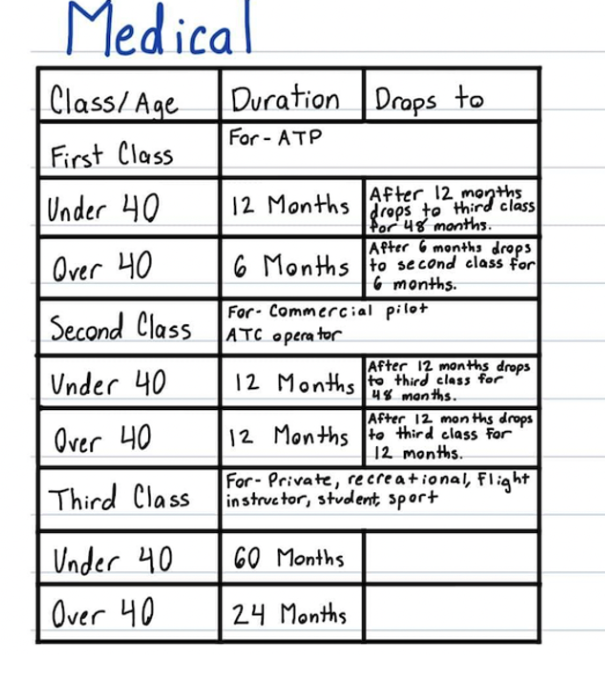 Medical
Class/Age Duration Drops to
First Class For - ATP
Under 40 12 Months After 12 months
drops to third class
for 48 months.
Over 40 6 Months After 6 months drops
to second class for
6 months.
Second Class For - Commercial pilot
ATC operator
Under 40 12 Months After 12 months drops
to third class for
48 months.
Over 40 12 Months After 12 months drops
to third class for
12 months.
Third Class For - Private, recreational, Flight
instructor, student, sport
Under 40 60 Months
Over 40 24 Months